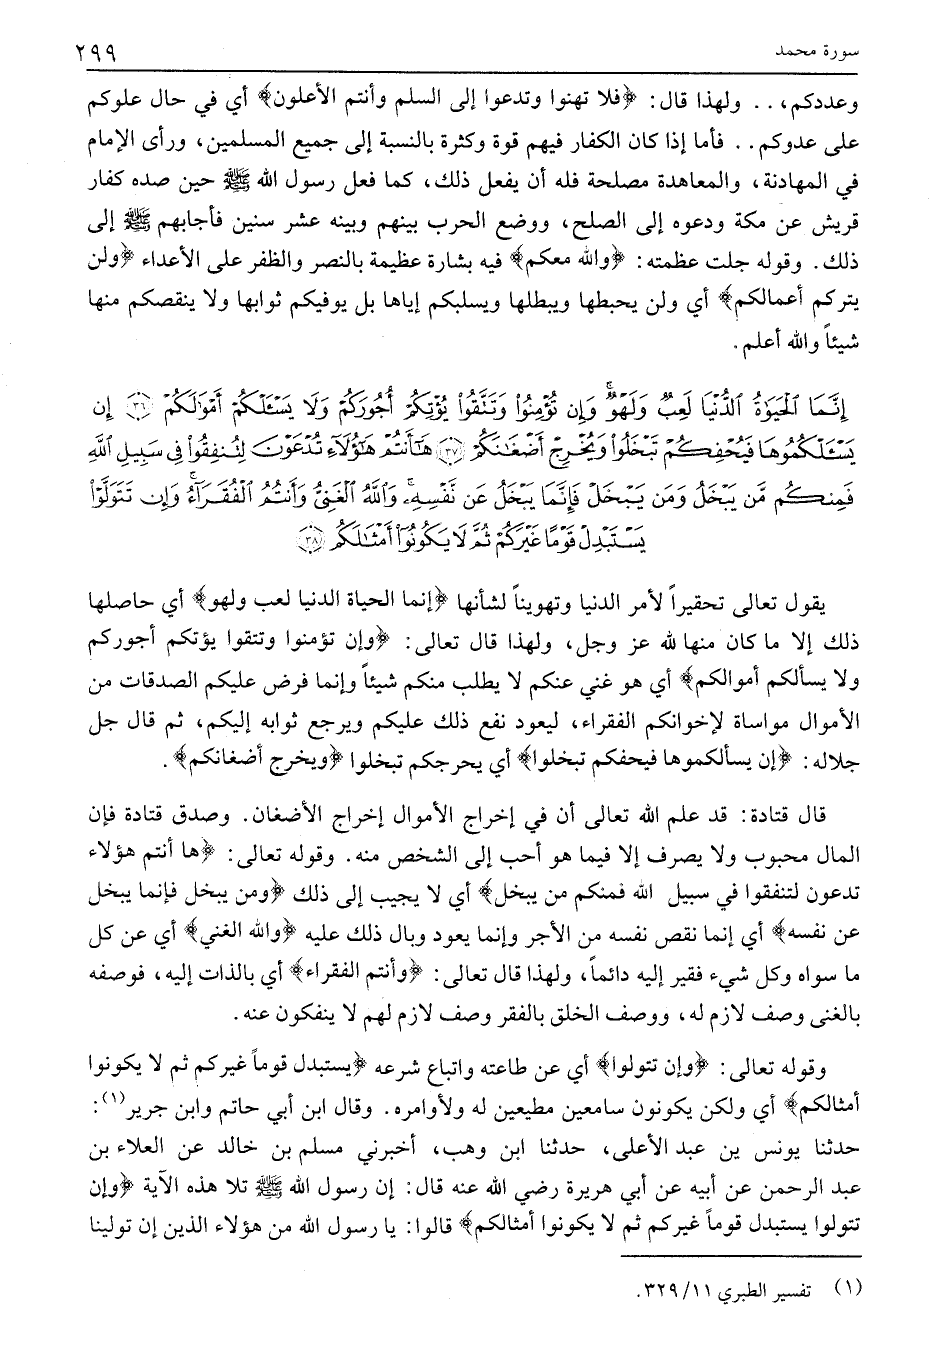 سورة محمد ٢٩٩
وعددكم، . . ولهذا قال: ﴿فلا تهنوا وتدعوا إلى السلم وأنتم الأعلون﴾ أي في حال علوكم
على عدوكم . . فأما إذا كان الكفار فيهم قوة وكثرة بالنسبة إلى جميع المسلمين، ورأى الإمام
في المهادنة، والمعاهدة مصلحة فله أن يفعل ذلك، كما فعل رسول الله ﷺ حين صده كفار
قريش عن مكة ودعوه إلى الصلح، ووضع الحرب بينهم وبينه عشر سنين فأجابهم ﷺ إلى
ذلك. وقوله جلت عظمته: ﴿والله معكم﴾ فيه بشارة عظيمة بالنصر والظفر على الأعداء ﴿ولن
يتركم أعمالكم﴾ أي ولن يحبطها ويبطلها ويسلبكم إياها بل يوفيكم ثوابها ولا ينقصكم منها
شيئاً والله أعلم.
إِنَّمَا الْحَيَوٰةُ الدُّنْيَا لَعِبٌ وَلَهْوٌ ۚ وَإِن تُؤْمِنُوا وَتَتَّقُوا يُؤْتِكُمْ أُجُورَكُمْ وَلَا يَسْـَٔلْكُمْ أَمْوَٰلَكُمْ ﴿٣٦﴾ إِن
يَسْـَٔلْكُمُوهَا فَيُحْفِكُمْ تَبْخَلُوا وَيُخْرِجْ أَضْغَـٰنَكُمْ ﴿٣٧﴾ هَـٰٓأَنتُمْ هَـٰٓؤُلَآءِ تُدْعَوْنَ لِتُنفِقُوا فِى سَبِيلِ اللَّهِ
فَمِنكُم مَّن يَبْخَلُ وَمَن يَبْخَلْ فَإِنَّمَا يَبْخَلُ عَن نَّفْسِهِۦ ۚ وَاللَّهُ الْغَنِىُّ وَأَنتُمُ الْفُقَرَآءُ ۚ وَإِن تَتَوَلَّوْا
يَسْتَبْدِلْ قَوْمًا غَيْرَكُمْ ثُمَّ لَا يَكُونُوٓا أَمْثَـٰلَكُم ﴿٣٨﴾
يقول تعالى تحقيراً لأمر الدنيا وتهويناً لشأنها ﴿إنما الحياة الدنيا لعب ولهو﴾ أي حاصلها
ذلك إلا ما كان منها لله عز وجل، ولهذا قال تعالى: ﴿وإن تؤمنوا وتتقوا يؤتكم أجوركم
ولا يسألكم أموالكم﴾ أي هو غني عنكم لا يطلب منكم شيئاً وإنما فرض عليكم الصدقات من
الأموال مواساة لإخوانكم الفقراء، ليعود نفع ذلك عليكم ويرجع ثوابه إليكم، ثم قال جل
جلاله: ﴿إن يسألكموها فيحفكم تبخلوا﴾ أي يحرجكم تبخلوا ﴿ويخرج أضغانكم﴾.
قال قتادة: قد علم الله تعالى أن في إخراج الأموال إخراج الأضغان. وصدق قتادة فإن
المال محبوب ولا يصرف إلا فيما هو أحب إلى الشخص منه. وقوله تعالى: ﴿ها أنتم هؤلاء
تدعون لتنفقوا في سبيل الله فمنكم من يبخل﴾ أي لا يجيب إلى ذلك ﴿ومن يبخل فإنما يبخل
عن نفسه﴾ أي إنما نقص نفسه من الأجر وإنما يعود وبال ذلك عليه ﴿والله الغني﴾ أي عن كل
ما سواه وكل شيء فقير إليه دائماً، ولهذا قال تعالى: ﴿وأنتم الفقراء﴾ أي بالذات إليه، فوصفه
بالغنى وصف لازم له، ووصف الخلق بالفقر وصف لازم لهم لا ينفكون عنه.
وقوله تعالى: ﴿وإن تتولوا﴾ أي عن طاعته واتباع شرعه ﴿يستبدل قوماً غيركم ثم لا يكونوا
أمثالكم﴾ أي ولكن يكونون سامعين مطيعين له ولأوامره. وقال ابن أبي حاتم وابن جرير(١):
حدثنا يونس ين عبد الأعلى، حدثنا ابن وهب، أخبرني مسلم بن خالد عن العلاء بن
عبد الرحمن عن أبيه عن أبي هريرة رضي الله عنه قال: إن رسول الله ﷺ تلا هذه الآية ﴿وإن
تتولوا يستبدل قوماً غيركم ثم لا يكونوا أمثالكم﴾ قالوا: يا رسول الله من هؤلاء الذين إن تولينا
(١) تفسير الطبري ١١/ ٣٢٩.